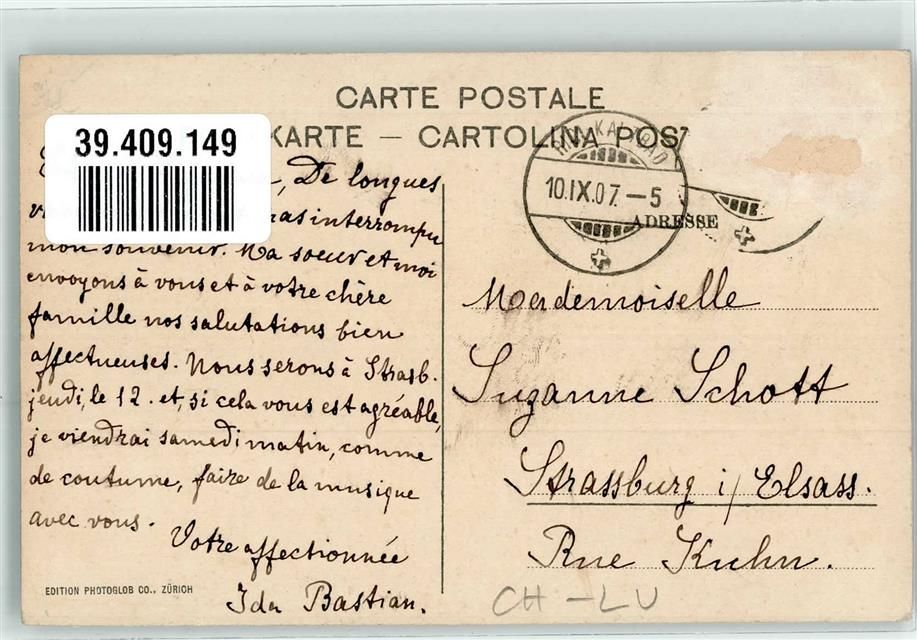 CARTE POSTALE
KARTE — CARTOLINA POST
39.409.149
KALTBAD
10.IX.07.—5
ADRESSE
, De longues
pas interrompu
mon souvenir. Ma soeur et moi
envoyons à vous et à votre chère
famille nos salutations bien
affectueuses. Nous serons à Strasb.
jeudi, le 12. et, si cela vous est agréable,
je viendrai samedi matin, comme
de coutume, faire de la musique
avec vous.
Votre affectionnée
Ida Bastian.
Mademoiselle
Suzanne Schott
Strassburg i/ Elsass.
Rue Kuhn.
EDITION PHOTOGLOB CO., ZÜRICH
CH - LU